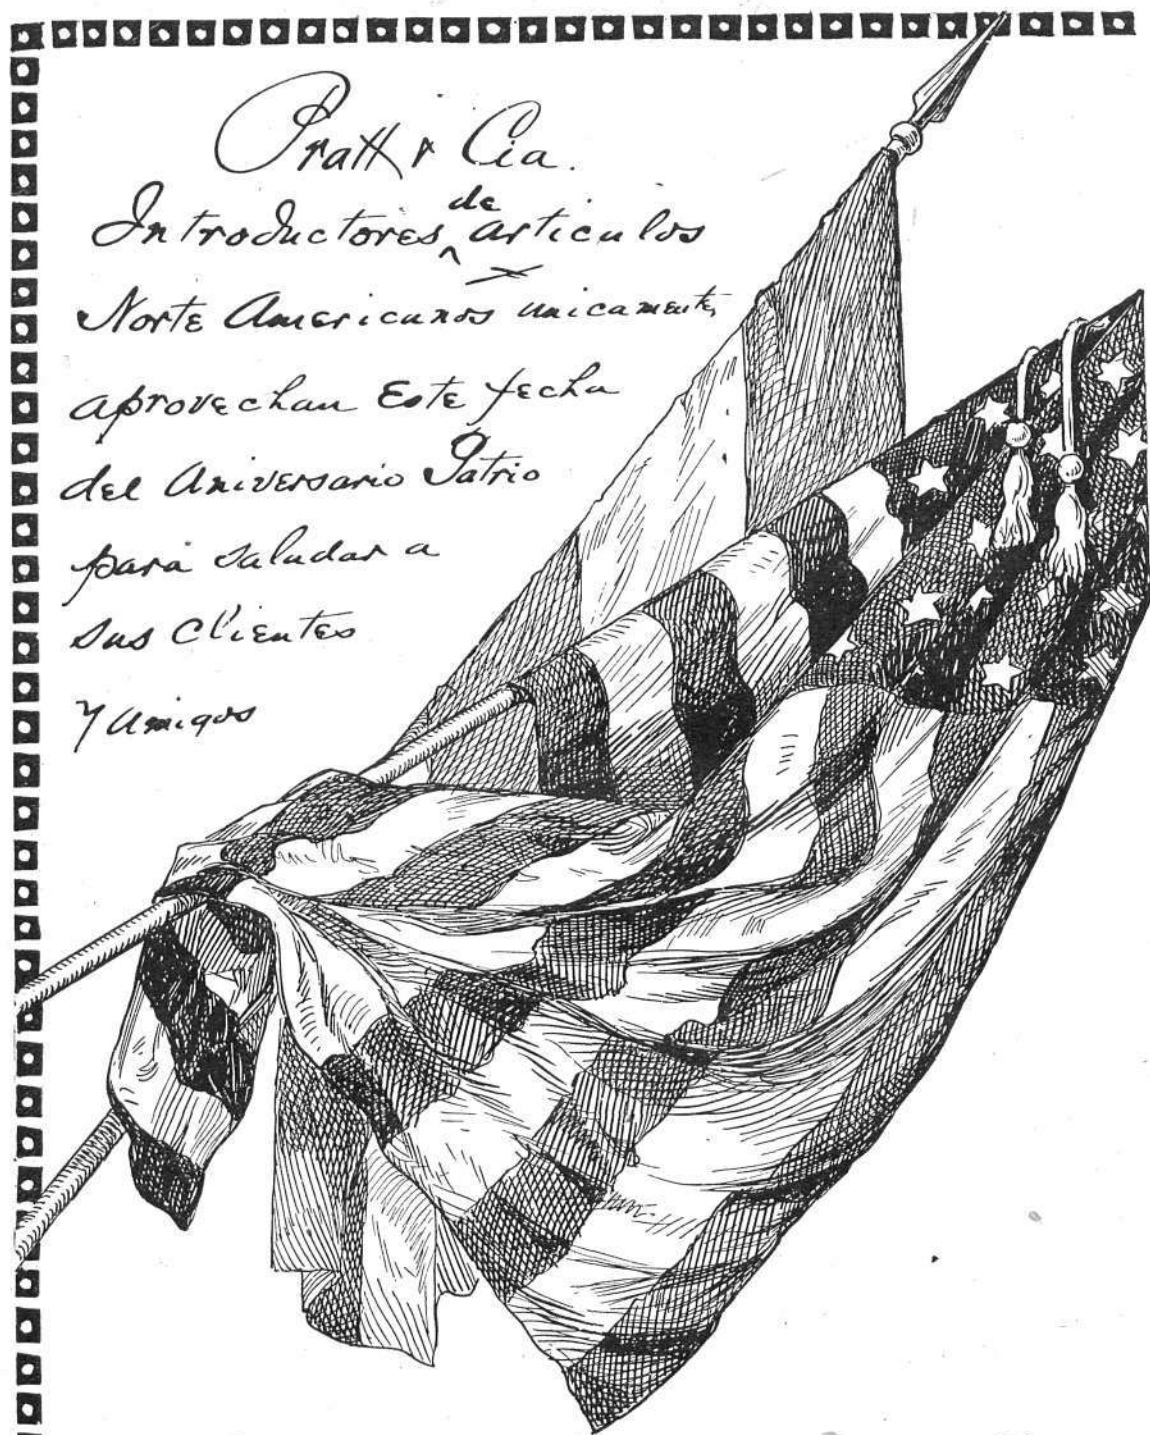 Pratt & Cia.
Introductores de articulos
Norte Americanos unicamente,
aprovechan Este fecha
del Aniversario Patrio
para saludar a
sus Clientes
Y Amigos